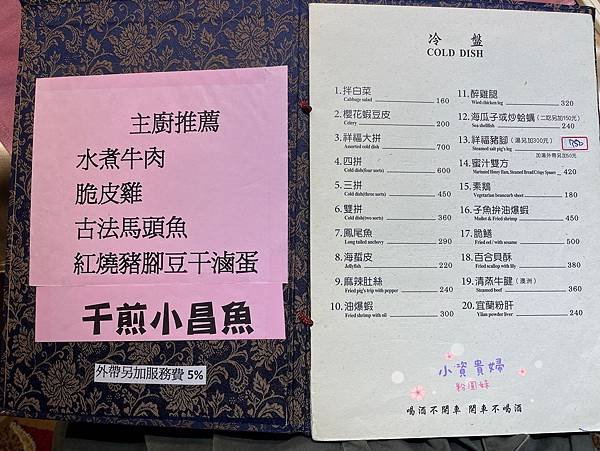 主廚推薦
水煮牛肉
脆皮雞
古法馬頭魚
紅燒豬腳豆干滷蛋
干煎小昌魚
外帶另加服務費 5%
冷 盤
COLD DISH
1.拌白菜
Cabbage salad 160
2.櫻花蝦豆皮
Celery 200
3.祥福大拼
Assorted cold dish 700
4.四拼
Cold dish(four sorts) 600
5.三拼
Cold dish(three sorts) 450
6.雙拼
Cold dish(two sorts) 360
7.鳳尾魚
Long tailed anchovy 290
8.海蜇皮
Jellyfish 220
9.麻辣肚絲
Fried pig's trip with pepper 240
10.油爆蝦
Fried shrimp with oil 300
11.醉雞腿
Wied chicken leg 320
12.海瓜子或炒蛤蠣(二吃另加150元)
Sea shellfish 240
13.祥福豬腳(湯另加300元)
Steamed salt pig's leg 750
加滷外帶另加50元
14.蜜汁雙方
Marinated Honey Ham, Steamed Bread Crispy Square 420
15.素鵝
Vegetarian beancurb sheet 180
16.子魚拚油爆蝦
Mullet & Fried shrimp 450
17.脆鱔
Fried eel / with sesame 500
18.百合貝酥
Fried scallop with lily 380
19.清蒸牛腱(澳洲)
Steamed beef 360
20.宜蘭粉肝
Yilan powder liver 240
小資貴婦
粉圓妹
喝酒不開車 開車不喝酒